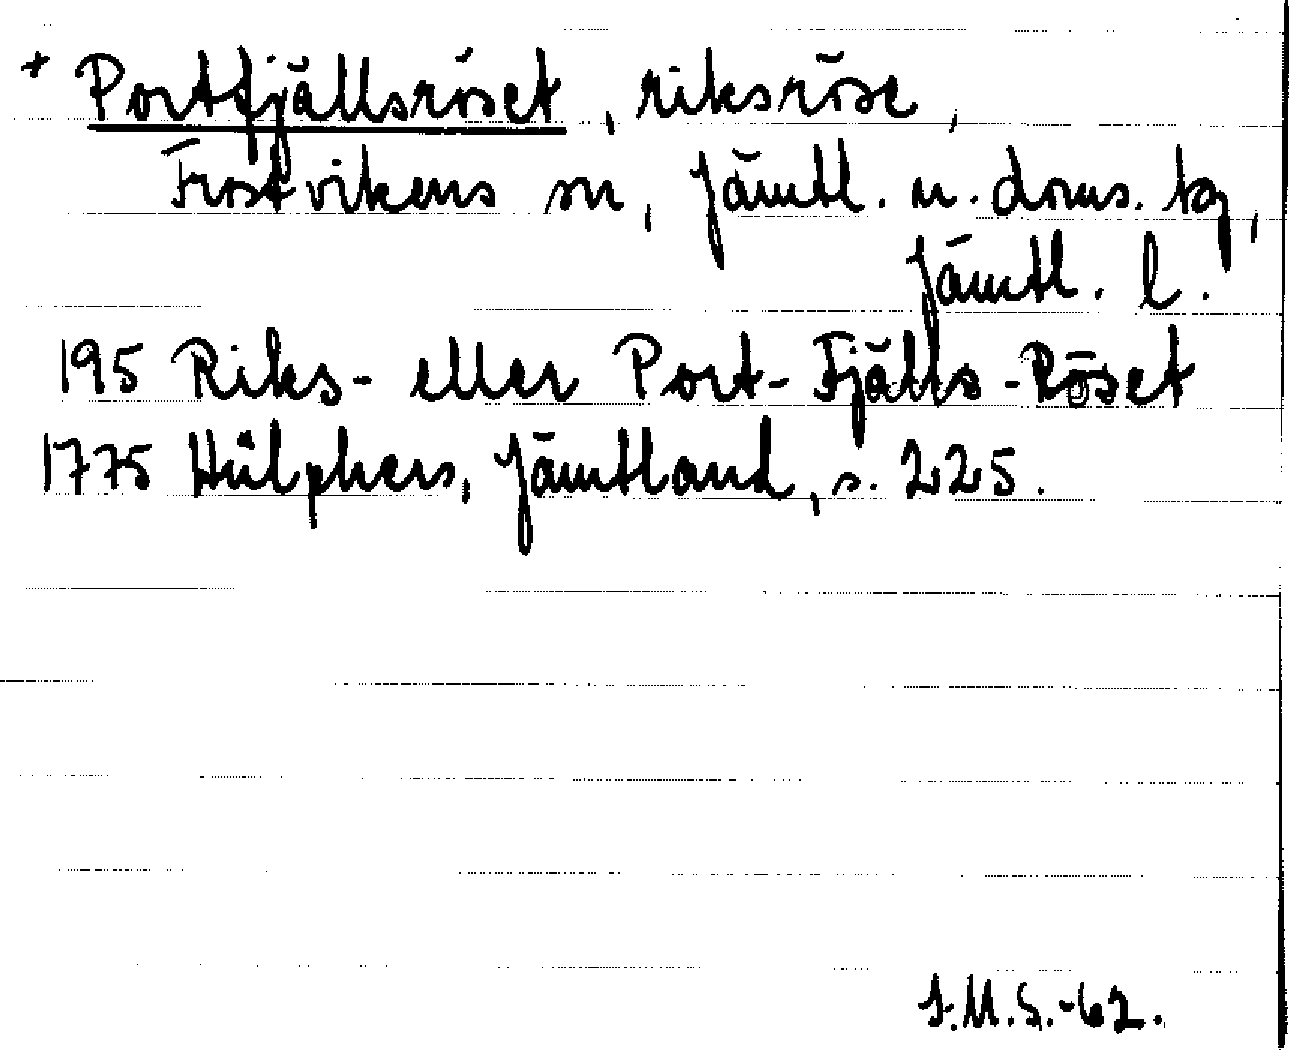 + Portfjällsröset, riksröse,
Frostvikens sn, Jämtl. n. doms. tg,
Jämtl. l.
195 Riks- eller Port-Fjälls-Röset
1775 Hülphers, Jämtland, s. 225.
S.M.S.-62.